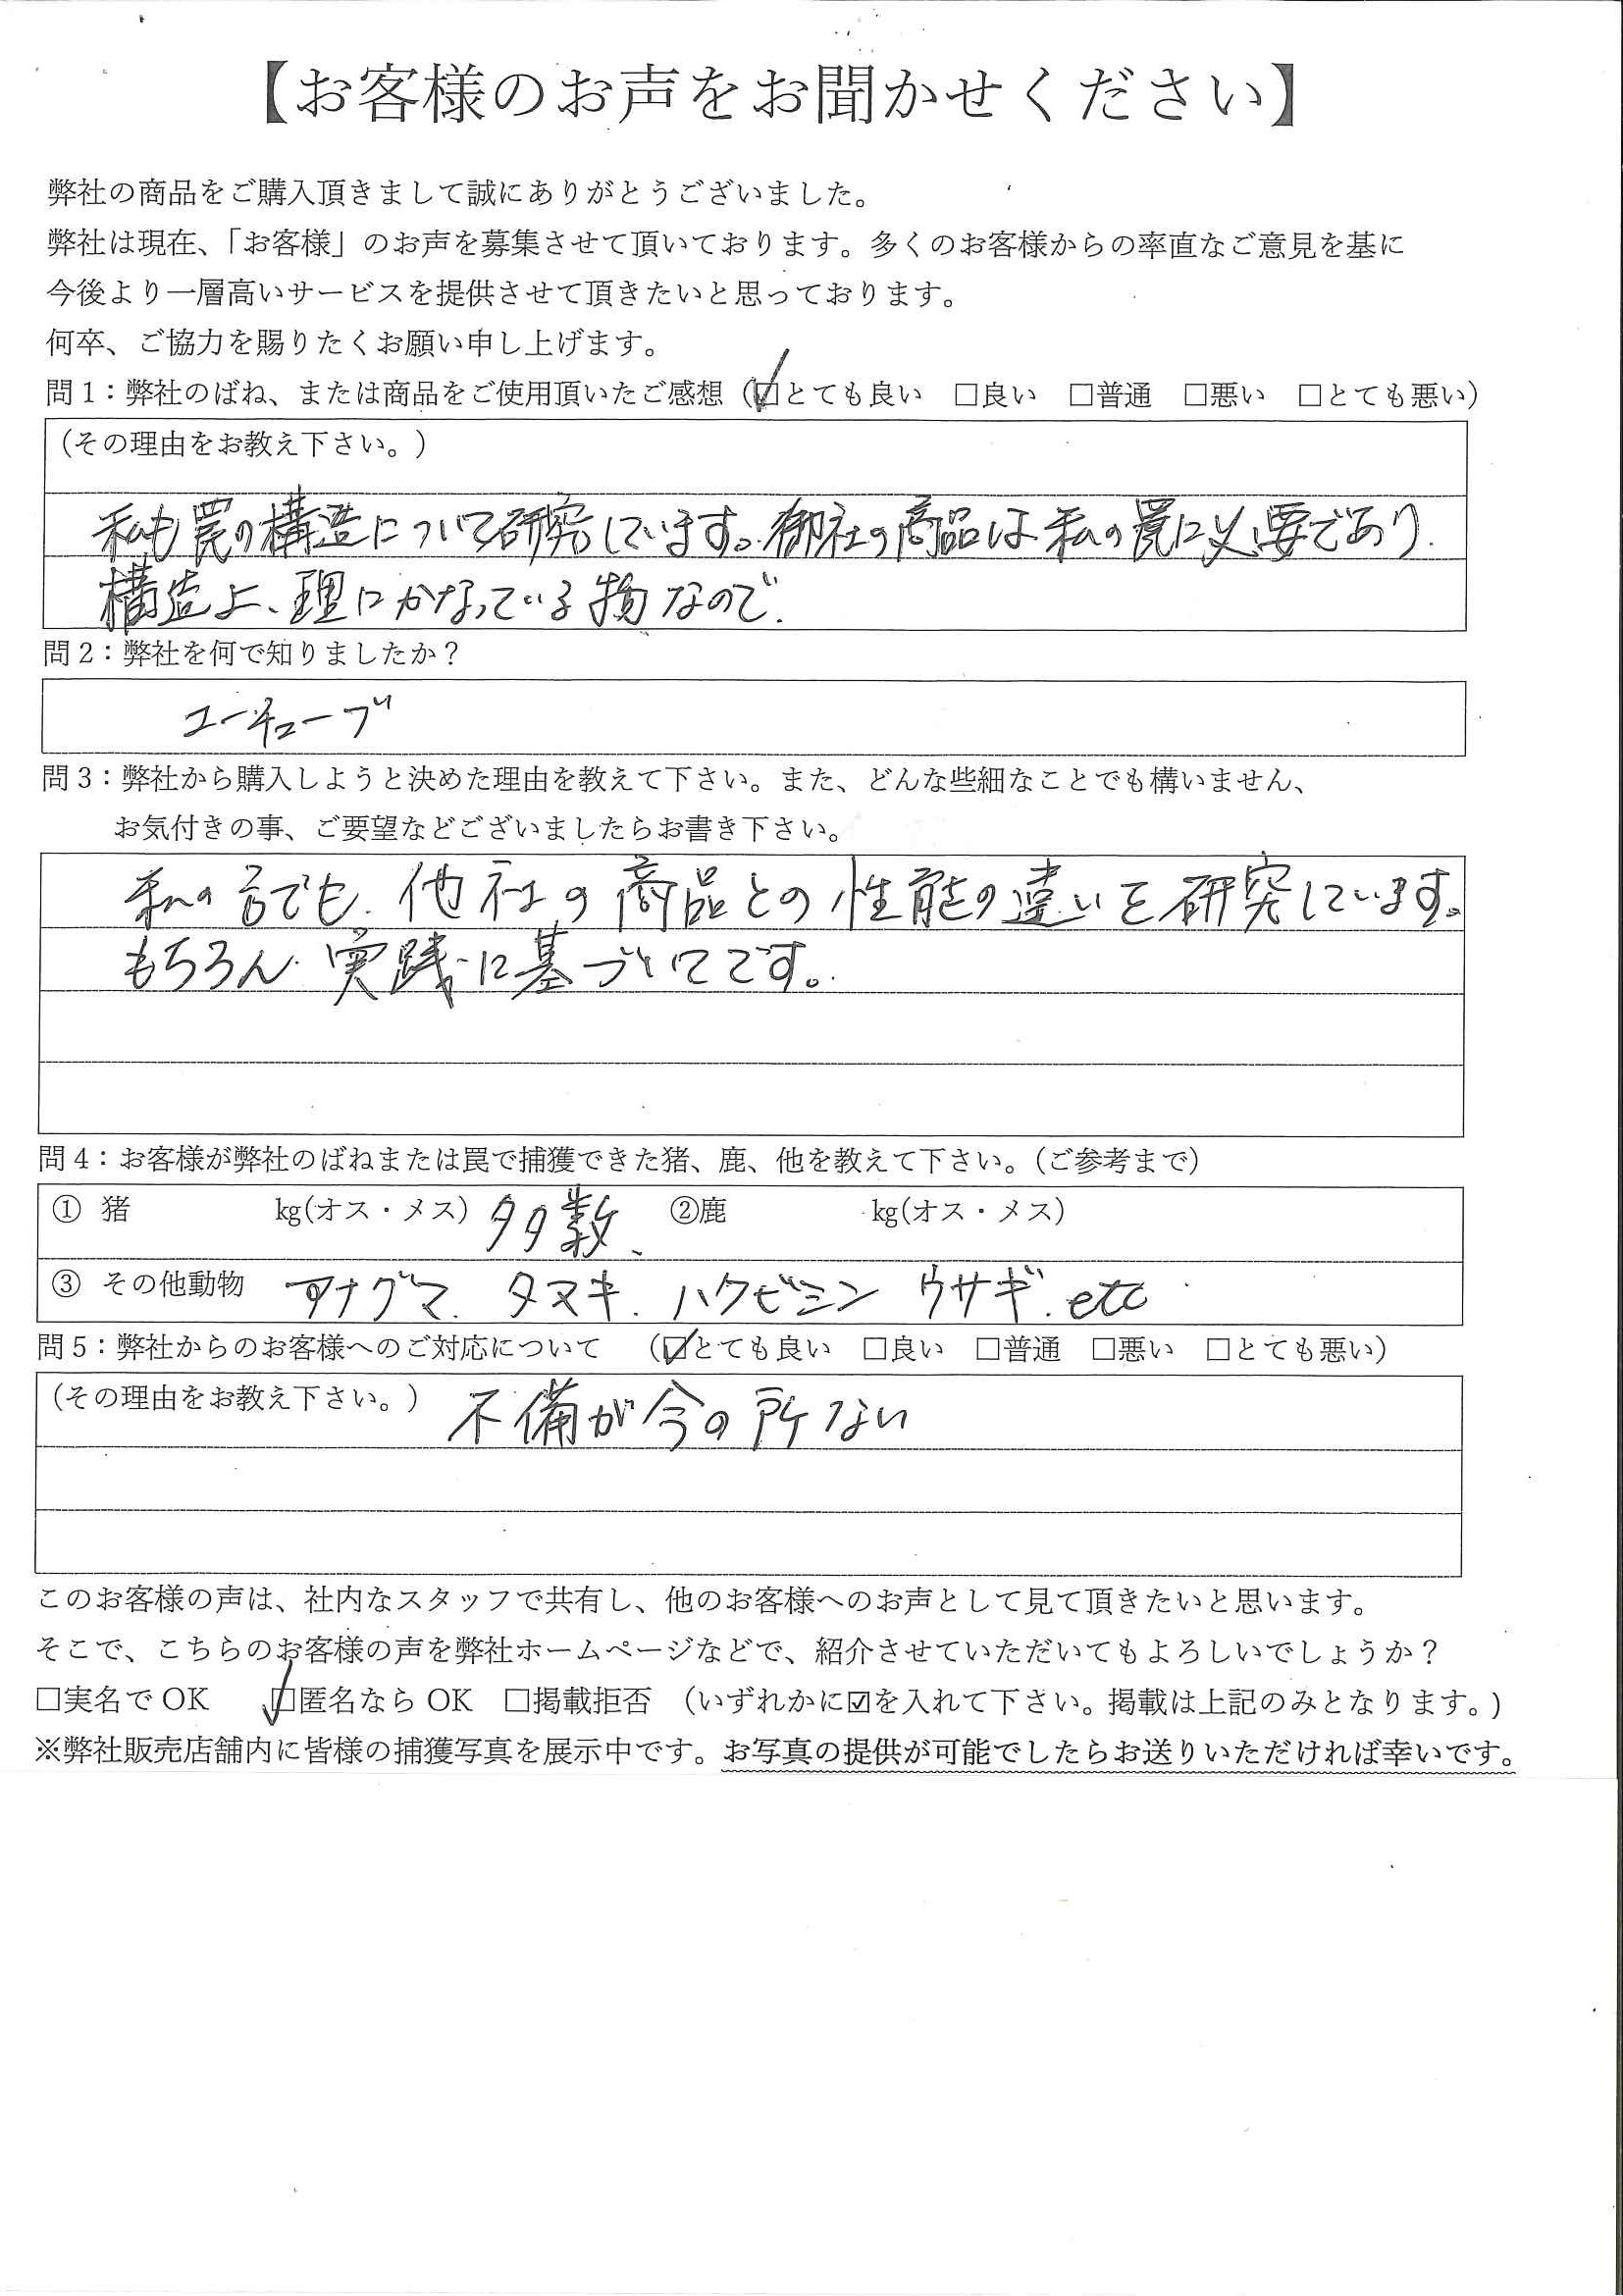 【お客様のお声をお聞かせください】
弊社の商品をご購入頂きまして誠にありがとうございました。
弊社は現在、「お客様」のお声を募集させて頂いております。多くのお客様からの率直なご意見を基に
今後より一層高いサービスを提供させて頂きたいと思っております。
何卒、ご協力を賜りたくお願い申し上げます。
問1：弊社のばね、または商品をご使用頂いたご感想（☑とても良い　□良い　□普通　□悪い　□とても悪い）
（その理由をお教え下さい。）
私も罠の構造について研究しています。御社の商品は私の罠に必要であり.
構造上、理にかなっている物なので.
問2：弊社を何で知りましたか？
ユーチューブ
問3：弊社から購入しようと決めた理由を教えて下さい。また、どんな些細なことでも構いません、
お気付きの事、ご要望などございましたらお書き下さい。
私の でも. 他社の商品との性能の違いを研究しています。
もちろん. 実践に基づいてです。
問4：お客様が弊社のばねまたは罠で捕獲できた猪、鹿、他を教えて下さい。（ご参考まで）
① 猪　　　kg(オス・メス) 多数、 ②鹿　　　kg(オス・メス)
③ その他動物　アナグマ. タヌキ. ハクビシン ウサギ. etc
問5：弊社からのお客様へのご対応について　（☑とても良い　□良い　□普通　□悪い　□とても悪い）
（その理由をお教え下さい。） 不備が今の所ない
このお客様の声は、社内なスタッフで共有し、他のお客様へのお声として見て頂きたいと思います。
そこで、こちらのお客様の声を弊社ホームページなどで、紹介させていただいてもよろしいでしょうか？
□実名でOK　☑匿名ならOK　□掲載拒否　（いずれかに☑を入れて下さい。掲載は上記のみとなります。）
※弊社販売店舗内に皆様の捕獲写真を展示中です。お写真の提供が可能でしたらお送りいただければ幸いです。